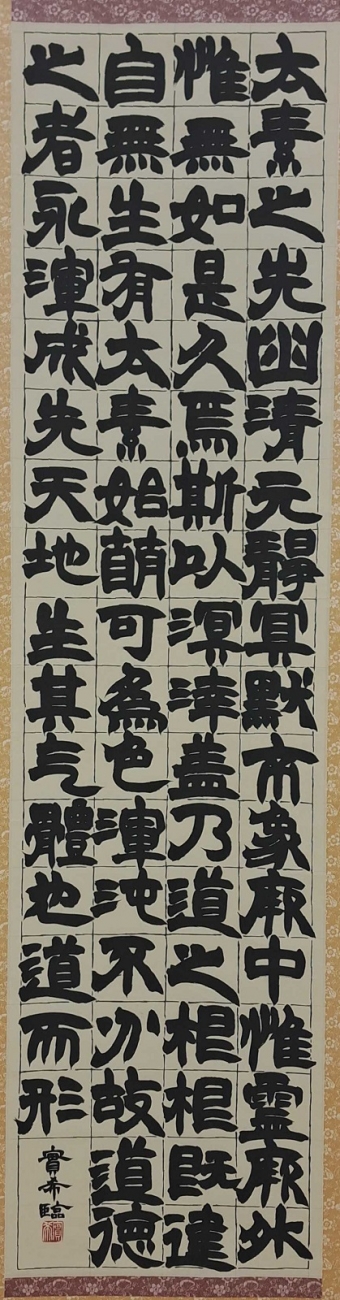 太素之光幽清元靜冥默象厥中惟靈厥外
惟無如是久焉斯以溟涬蓋乃道之根根既建
自無生有太素始萌可為色渾沌不分故道德
之者永渾成先天地生其气體也道而形
實希臨